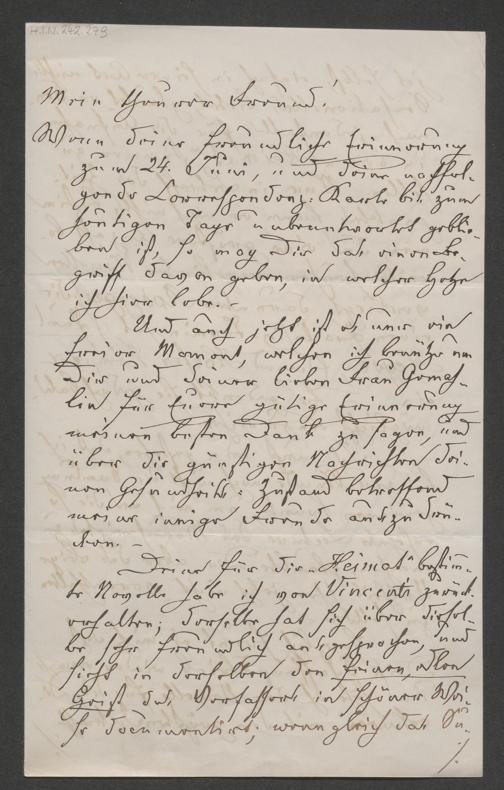 H.I.N. 242.279
Mein theurer Freund!
Wenn deine freundliche Erinnerung
zum 24. Juni, und deine nachfol-
gende Correspondenz-Karte bis zum
heutigen Tage unbeantwortet geblie-
ben ist, so mag Dir das einen Be-
griff davon geben, in welcher Hetze
ich hier lebe. –
Und auch jetzt ist es nur ein
freier Moment, welchen ich benütze um
Dir und deiner lieben Frau Gemah-
lin für Eure gütige Erinnerung
meinen besten Dank zu sagen, und
über die günstigen Nachrichten dei-
nen Gesundheits-Zustand betreffend
meine innige Freude auszudrü-
cken. –
Deine für die „Heimat“ bestimm-
te Novelle habe ich von Vincenti zurück
erhalten; derselbe hat sich über diesel-
be sehr freundlich ausgesprochen, und
sieht in derselben den feinen, edlen
Geist des Verfassers in schöner Wei-
se documentirt; wenngleich das